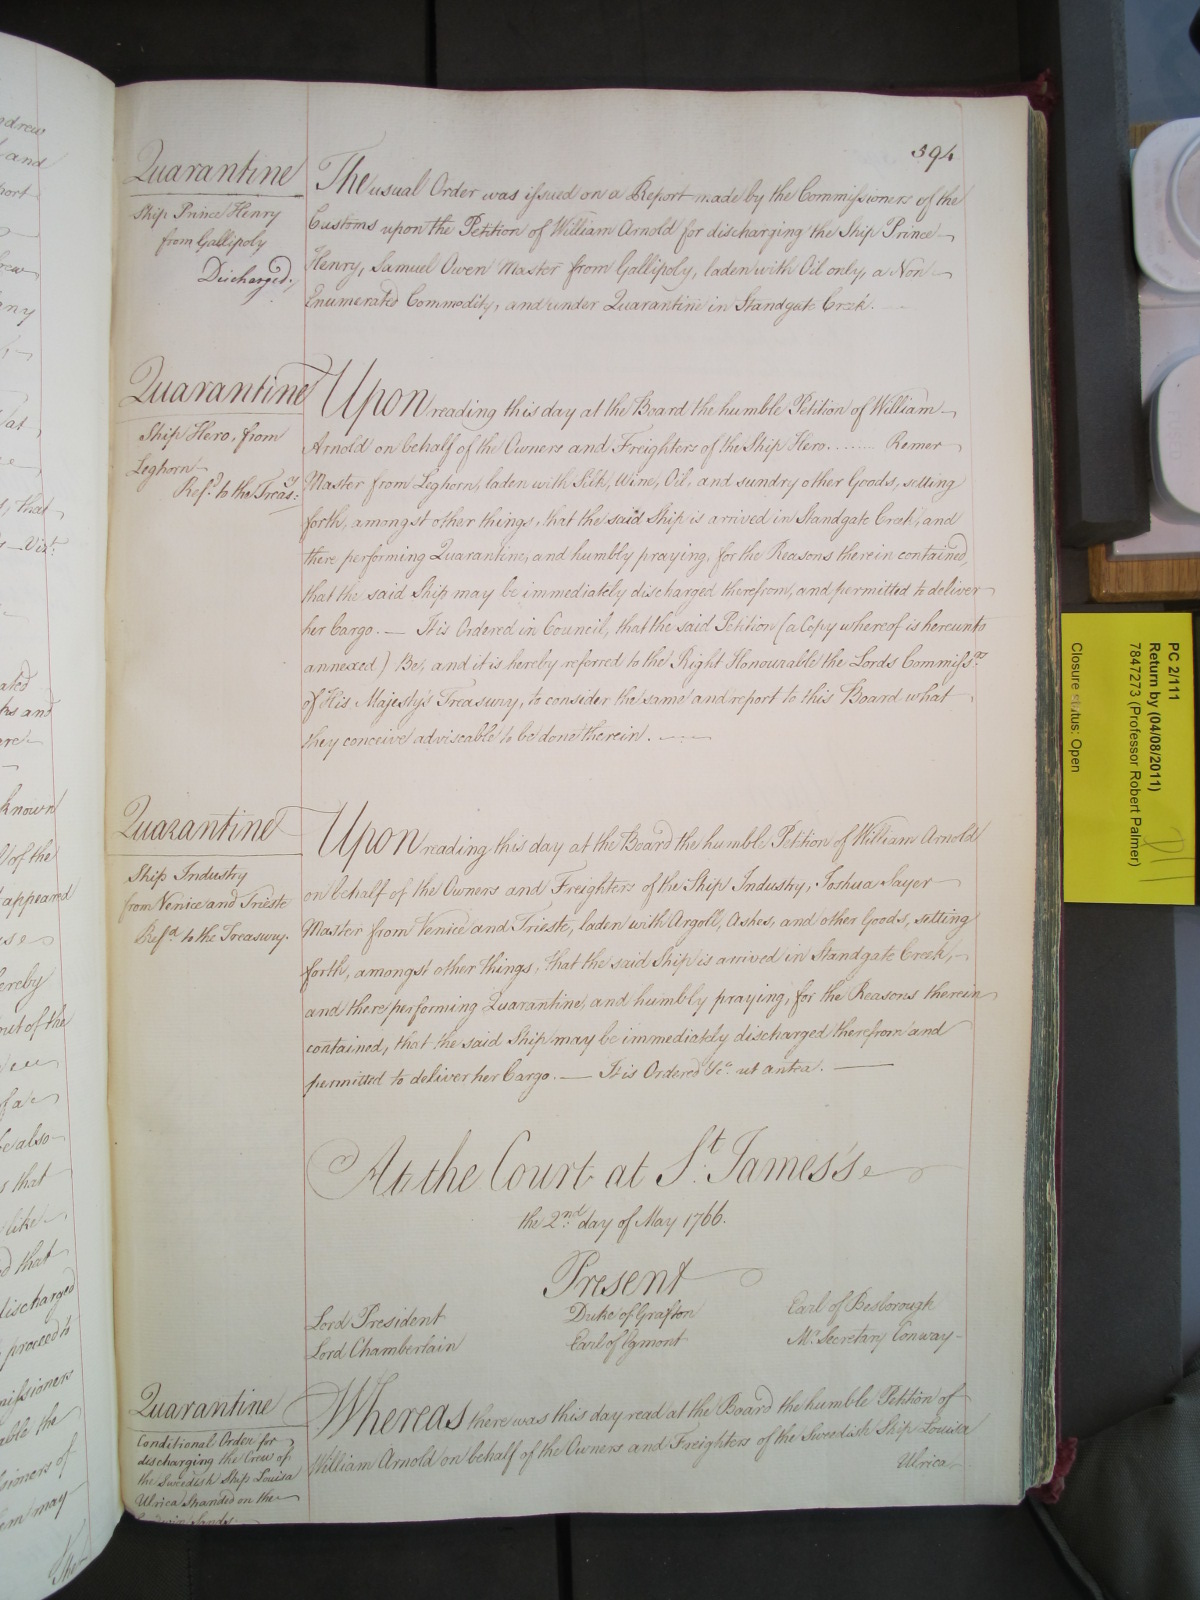 394
Quarantine
Ship Prince Henry
from Gallipoly
Discharged.
The usual Order was issued on a Report made by the Commissioners of the
Customs upon the Petition of William Arnold for discharging the Ship Prince
Henry, Samuel Owen Master from Gallipoly, laden with Oil only, a Non
Enumerated Commodity, and under Quarantine in Standgate Creek.
Quarantine
Ship Hero, from
Leghorn
Ref.d to the Treas:ry
Upon reading this day at the Board the humble Petition of William
Arnold on behalf of the Owners and Freighters of the Ship Hero ........ Remer
Master from Leghorn, laden with Silk, Wine, Oil, and sundry other Goods, setting
forth, amongst other things, that the said Ship is arrived in Standgate Creek, and
there performing Quarantine, and humbly praying, for the Reasons therein contained,
that the said Ship may be immediately discharged therefrom, and permitted to deliver
her Cargo. — It is Ordered in Council, that the said Petition (a Copy whereof is hereunto
annexed) Be, and it is hereby referred to the Right Honourable the Lords Commiss:rs
of His Majesty's Treasury, to consider the same and report to this Board what
they conceive adviseable to be done therein.
Quarantine
Ship Industry
from Venice and Trieste
Ref.d to the Treasury.
Upon reading this day at the Board the humble Petition of William Arnold
on behalf of the Owners and Freighters of the Ship Industry, Joshua Sayer
Master from Venice and Trieste, laden with Argoll, Ashes, and other Goods, setting
forth, amongst other things, that the said Ship is arrived in Standgate Creek,
and there performing Quarantine, and humbly praying, for the Reasons therein
contained, that the said Ship may be immediately discharged therefrom and
permitted to deliver her Cargo. — It is Ordered &c. ut antea. —
At the Court at S.t James's
the 2.nd day of May 1766.
Present
Lord President
Duke of Grafton
Earl of Besborough
Lord Chamberlain
Earl of Egmont
M.r Secretary Conway
Quarantine
Conditional Order for
discharging the Crew of
the Swedish Ship Louisa
Ulrica Stranded on the
Sands.
Whereas there was this day read at the Board the humble Petition of
William Arnold on behalf of the Owners and Freighters of the Swedish Ship Louisa
Ulrica
PC 2/111
Return by (04/08/2011)
7847273 (Professor Robert Palmer)
Closure status: Open